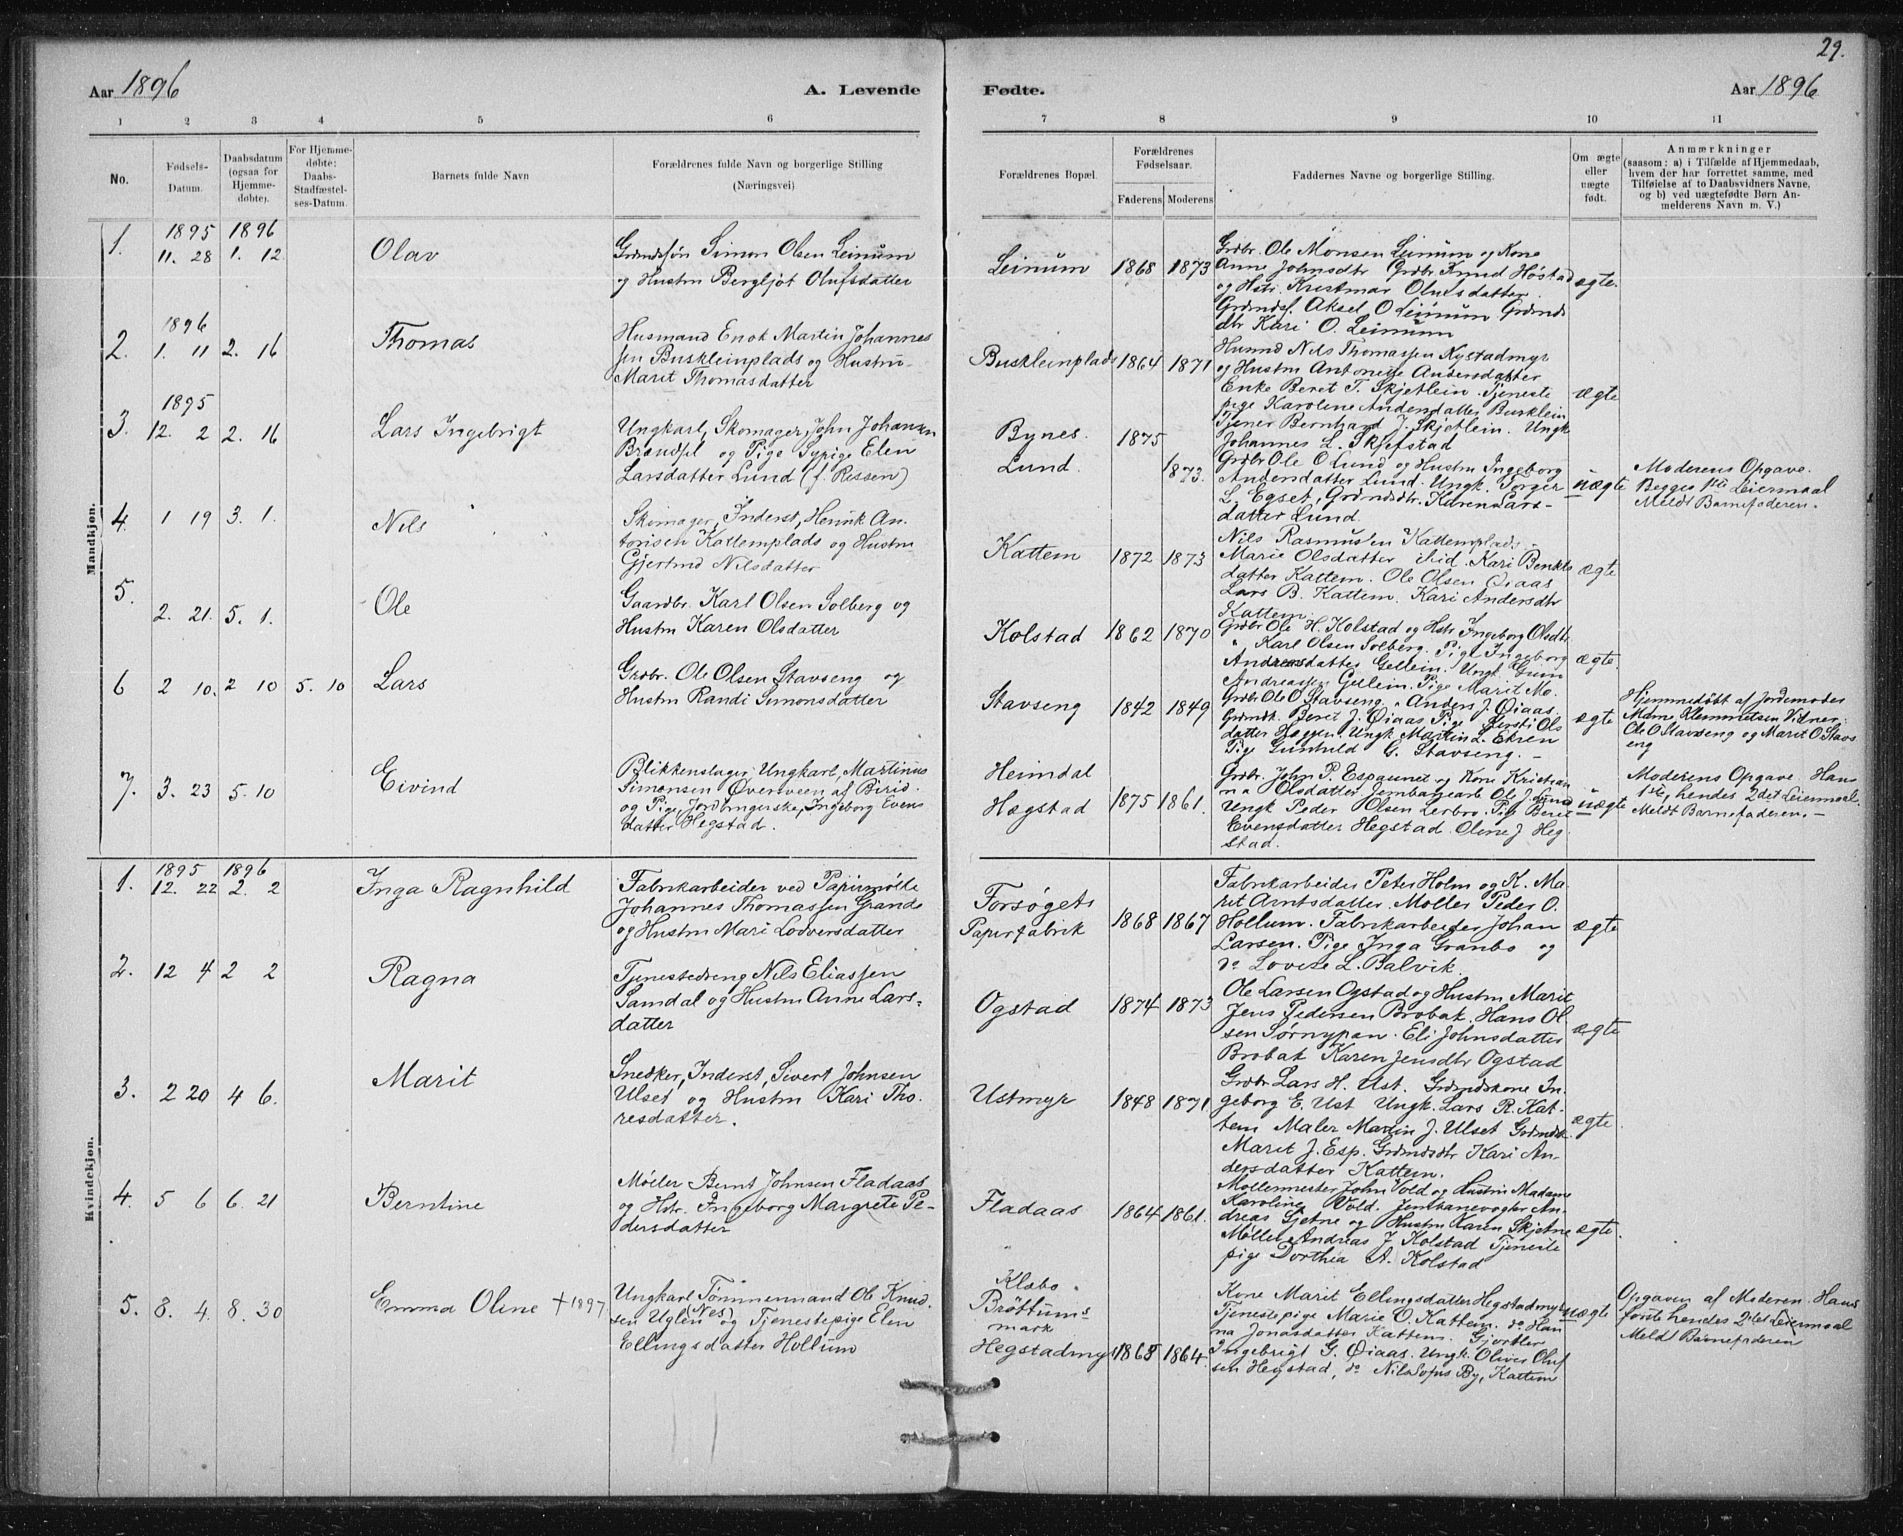 29.
Aar 1896
A. Levende Fødte.
Aar 1896
1 2 3 4 5 6 7 8 9 10 11
No.
Fødsels-Datum.
Daabsdatum (ogsaa for Hjemmedøbte).
For Hjemmedøbte: Daabs-Stadfæstelses-Datum.
Barnets fulde Navn
Forældrenes fulde Navn og borgerlige Stilling (Næringsvei)
Forældrenes Bopæl.
Forældrenes Fødselsaar.
Faderens Moderens
Faddernes Navne og borgerlige Stilling.
Om ægte eller uægte født.
Anmærkninger
(saasom: a) i Tilfælde af Hjemmedaab, hvem der har forrettet samme, med Tilføielse af to Daabsvidners Navne, og b) ved uægtefødte Børn Anmelderens Navn m. V.)
Mandkjøn.
1. 1895 11. 28 1896 1. 12 Olav
Grdmdssøn Simon Olsen Leinum
og Hustru Bergljot Olufsdatter
Leinum 1868 1873
Grdbr. Ole Monsen Leinum og Kone
Anne Johnsdtr Grdbr Knud Høstad
og Hstr. Kristmar Olufsdatter.
Grdmdsf. Aksel O Leinum Grdmds
dtr Kari O. Leinum
ægte.
2. 1896 1. 11 2. 16 Thomas
Husmand Enok Martin Johannes
sen Buskleinplads og Hustru
Marit Thomasdatter
Buskleinplads 1864 1871
Husmd Nils Thomassen Nystadmyr
og Hustru Antonette Andersdatter
Enke Beret T. Skjetlein. Tjeneste
pige Karoline Andersdatter Busklein
Tjener Bernhard J. Skjetlein. Ungk
Johannes L. Skjefstad
ægte
3. 1895 12. 2 2. 16 Lars Ingebrigt
Ungkarl, Skomager, John Johansen
Brandsl og Pige Sypige Elen
Larsdatter Lund (f. Rissen)
Bynes. 1875
Lund. 1873.
Grdbr Ole O Lund og Hustru Ingeborg
Andersdatter Lund. Ungk. Torger
L. Egset, Grdmdsdtr. Karen Lars-
datter Lund.
uægte
Moderens Opgave.
Begges 1ste Leiermaal
Meldt Barnefaderen.
4. 1 19 3. 1. Nils
Skomager, Inderst, Henrik An-
tonsen Kattemplads og Hustru
Gjertrud Nilsdatter
Kattem 1872 1873
Nils Rasmussen Kattemplads.
Marie Olsdatter ibid. Kari Benkts
datter Kattem. Ole Olsen Øiaas
Lars B. Kattem. Kari Andersdtr
Kattem.
ægte
5. 2. 21. 5. 1. Ole
Gaardbr. Karl Olsen Solberg og
Hustru Karen Olsdatter
Kolstad 1862 1870
Grdbr Ole H. Kolstad og Hstr Ingeborg Olsdtr
" Karl Olsen Solberg. Pige Ingeborg
Andreasdatter Gellein. Ungk. Gunn
Andreassen Gellein. Pige Marit Mo.
ægte.
6 2 10. 2 10 5. 10 Lars
Grdbr. Ole Olsen Stavseng og
Hustru Randi Simonsdatter
Stavseng 1842 1849
Grdbr Ole O Stavseng. " Anders J. Øiaas.
Grdmdk. Berit J. Øiaas Pige Kersti Ols
datter Haggen. Ungk. Martin L. Ekren
Pige Gunhild G. Stavseng. –
ægte
Hjemmedøbt af Jordemoder
Mdme Klemmetsen. Vidner:
Ole O Stavseng og Marit O. Stavs
eng
7. 3. 23 5. 10 Eivind
Blikkenslager, Ungkarl, Martinus
Simonsen Øverveen af Birid.
og Pige, Jordbrugerske, Ingeborg Evens
datter Hegstad.
Heimdal
Hægstad 1875 1861.
Grdbr. John P. Espaunet og Kone Kristian
na Olsdatter Jernbanearb Ole J. Lund
Ungk Peder Olsen Lerbro. Pig Beret
Evensdatter Hegstad. Oline J Heg
stad.
uægte
Moderens Opgave. Hans
1ste, hendes 2det Leiermaal.
Meldt Barnefaderen. –
Kvindekjøn.
1. 1895 12. 22 1896 2. 2 Inga Ragnhild
Fabrikarbeider ved Papirmølle
Johannes Thomassen Grande
og Hustru Mari Lodversdatter
Forsøgets
Papirfabrik 1868 1867
Fabrikarbeider Peter Holm og K. Ma-
rit Arntsdatter. Møller Peder O.
Hollum. Fabrikarbeider Johan
Larsen. Pige Inga Granbo og
do Lovise L. Balvik.
ægte
2. 12 4 2 2 Ragna
Tjenestedreng Nils Eliassen
Samdal og Hustru Anne Lars-
datter
Ogstad 1874 1873
Ole Larsen Ogstad og Hustru Marit
Jens Pedersen Brobak. Hans Ol
sen Sørnypan. Eli Johnsdatter
Brobak Karen Jensdtr Ogstad
ægte
3. 2 20 4 6. Marit
Snedker, Inderst, Sivert Johnsen
Ulset og Hustru Kari Tho.
resdatter.
Ustmyr 1848 1871
Grdbr Lars H. Ust. Grdmdskone In-
geborg E. Ust Ungk. Lars R. Kat-
tem Maler Martin J. Ulset Grdmdsk.
Marit J. Esp. Grdmdsdtr Kari An-
dersdatter Kattem.
ægte
4. 5 6 6. 21 Berntine
Møller Bernt Johnsen Fladaas
og Hstr. Ingeborg Margrete Pe-
dersdatter
Fladaas 1864 1861.
Møllemester John Vold og Hustru Madame
Karoline Vold. Jernbanevogter An-
dreas Gjetne og Hustru Karen Skjetne
Møller Andreas J Kolstad Tjeneste
pige Dorthea A. Kolstad
ægte.
5. 8. 4. 8. 30 Emma Oline † 1897
Ungkarl Tømmermand Ole Knud-
sen Uglen (Nes) og Tjenestepige Elen
Ellingsdatter Hollum
Klæbo
Brøttums-
mark
Hegstadmyr 1865 1864.
Kone Marit Ellingsdatter Hegstadmyr
Tjenestepige Marie O. Kattem. do Han
na Jonasdatter Kattem. Gjørtler
Ingebrigt G. Øiaas. Ungk. Oliver Oluf
sen Hegstad, do Nils Sofus By, Kattem
uægte
Opgaven af Moderen. Hans
første hendes 2det Leiermaal
Meldt Barnefaderen